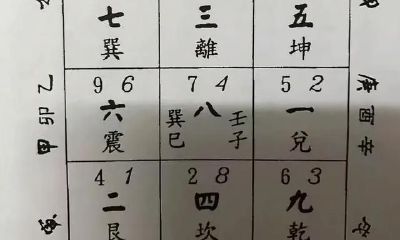 七 三 五
巽 離 坤
9 6 7 4 5 2
乙 六 巽 八 壬 一 庚
卯 震 巳 子 兌 酉
甲 辛
4 1 2 8 6 3
二 四 九
艮 坎 乾